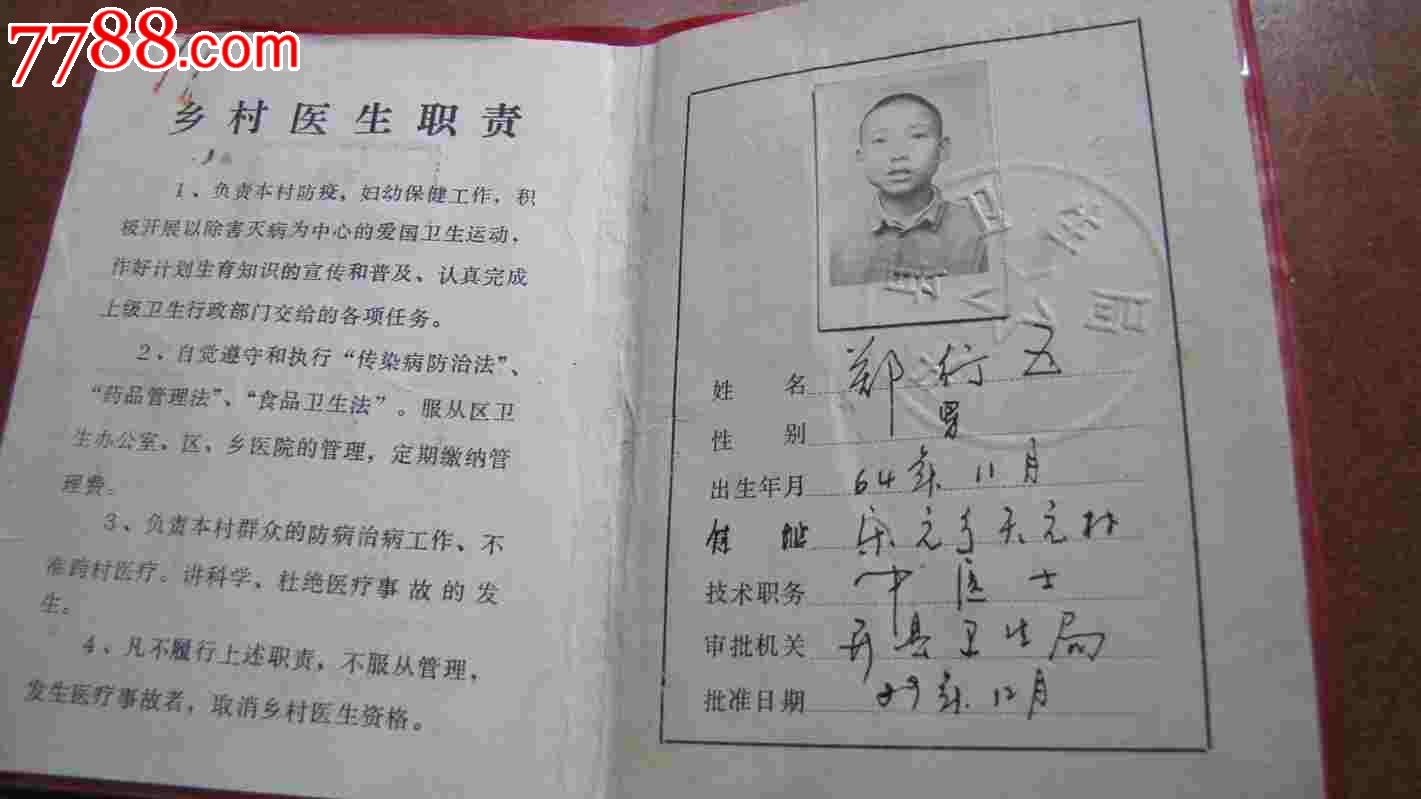 7788.com
乡村医生职责
1、负责本村防疫，妇幼保健工作，积
极开展以除害灭病为中心的爱国卫生运动、
作好计划生育知识的宣传和普及、认真完成
上级卫生行政部门交给的各项任务。
2、自觉遵守和执行“传染病防治法”、
“药品管理法”、“食品卫生法”。服从区卫
生办公室、区、乡医院的管理，定期缴纳管
理费。
3、负责本村群众的防病治病工作、不
准跨村医疗。讲科学、杜绝医疗事故的发
生。
4、凡不履行上述职责，不服从管理，
发生医疗事故者，取消乡村医生资格。
卫生局
姓名 郑行五
性别 男
出生年月 64年11月
住址 元乡天元村
技术职务 中医士
审批机关 开县卫生局
批准日期 89年12月